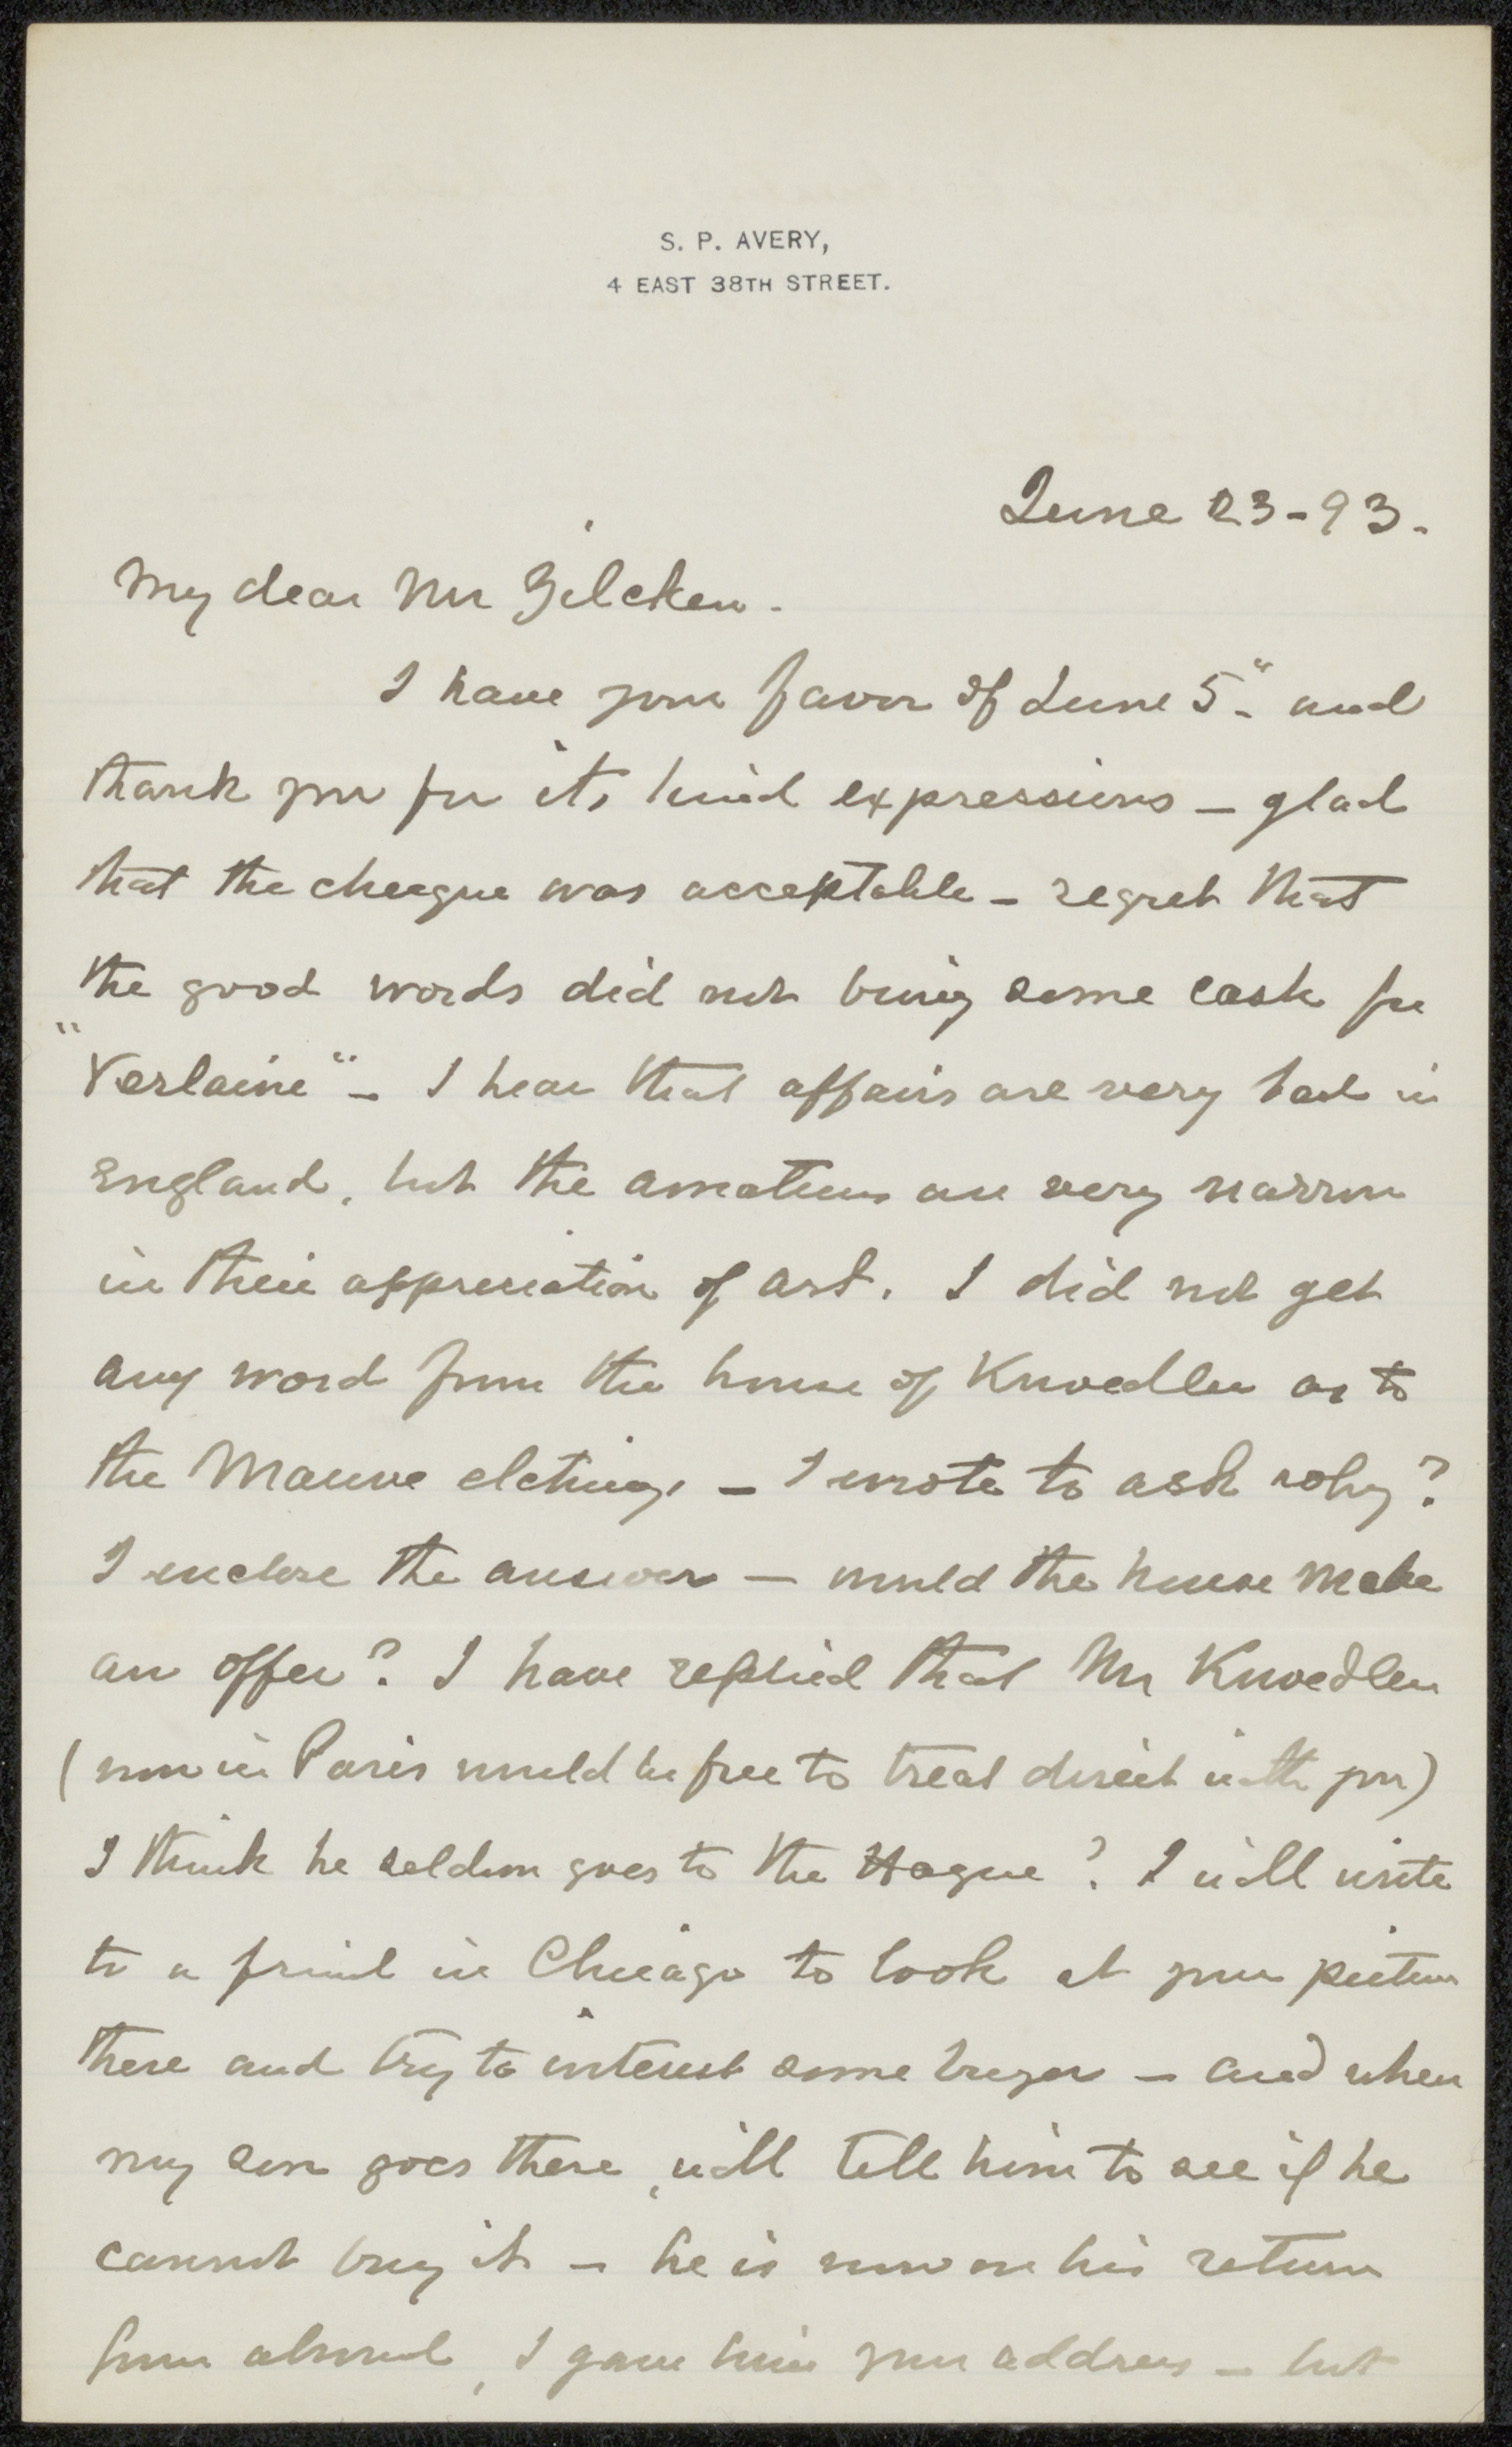 S. P. AVERY,
4 EAST 38TH STREET.
June 23-93.
My dear Mr Zilcken.
I have your favor of June 5" and
thank you for its kind expressions — glad
that the cheque was acceptable — regret that
the good words did not bring some cash for
"Verlaine" — I hear that affairs are very bad in
England, but the amateurs are very narrow
in their appreciation of art. I did not get
any word from the house of Knoedler as to
the Mauve etchings — I wrote to ask why?
I enclose the answer — would the house make
an offer? I have replied that Mr Knoedler
(now in Paris would be free to treat direct with you)
I think he seldom goes to the Hague? I will write
to a friend in Chicago to look at your picture
there and try to interest some buyer — and when
my son goes there, will tell him to see if he
cannot buy it — he is now on his return
from abroad, I gave him your address — but